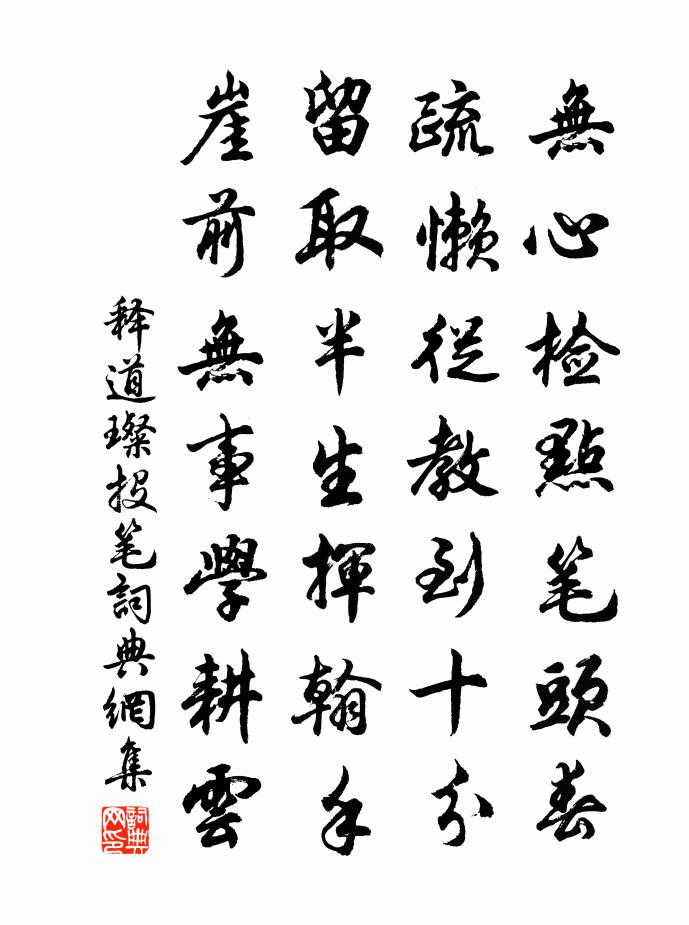 無心檢點笔頭春
疏懶從教到十分
留取半生揮翰手
崖前無事學耕雲
释道璨投笔詞典網集
詞典网印